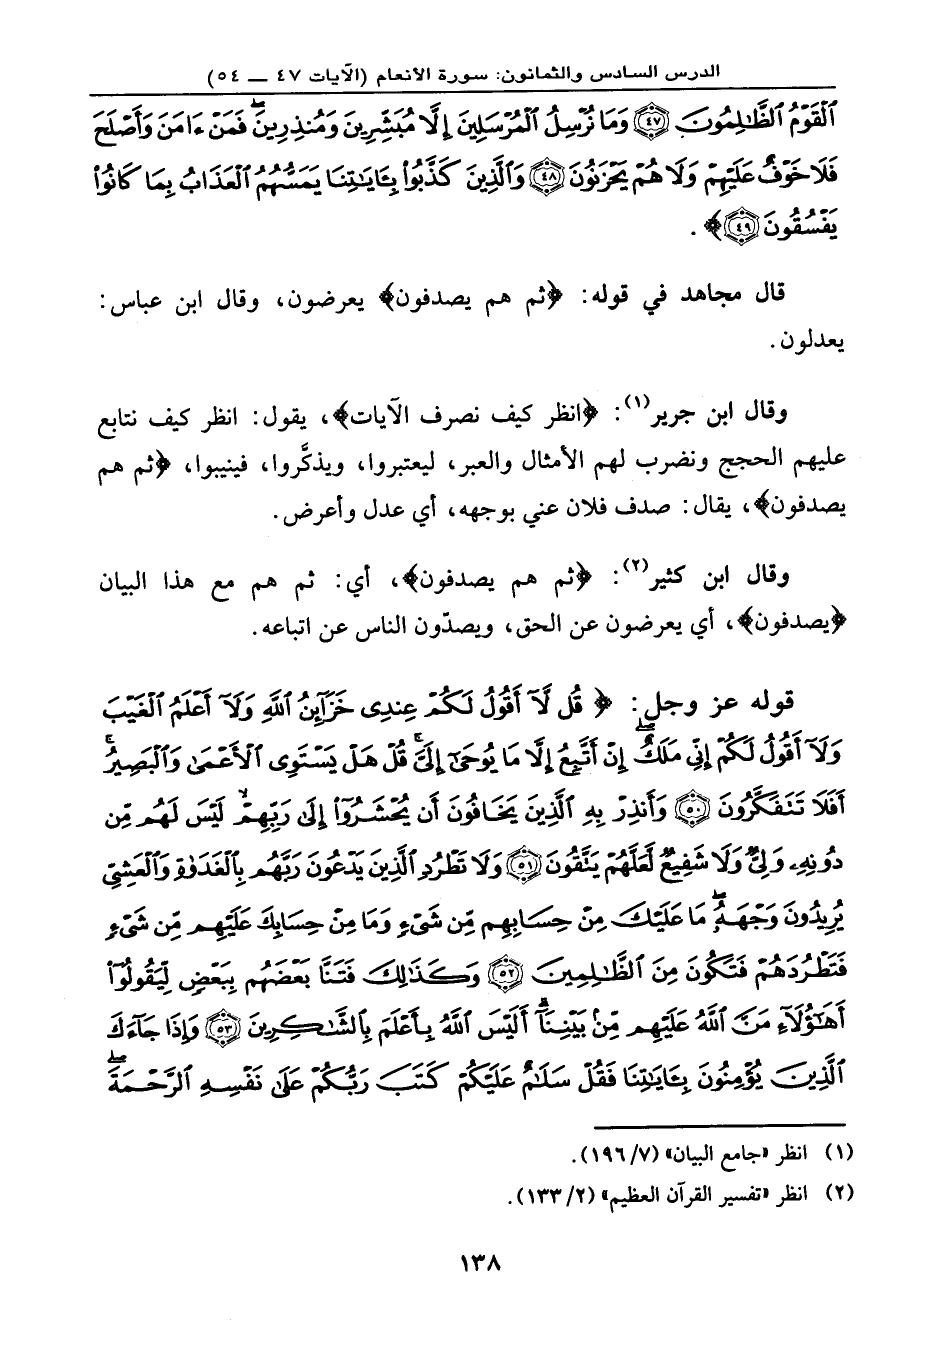 الدرس السادس والثمانون: سورة الأنعام (الآيات ٤٧ ــ ٥٤)
ٱلْقَوْمُ ٱلظَّٰلِمُونَ ﴿٤٧﴾ وَمَا نُرْسِلُ ٱلْمُرْسَلِينَ إِلَّا مُبَشِّرِينَ وَمُنذِرِينَۖ فَمَنْ ءَامَنَ وَأَصْلَحَ
فَلَا خَوْفٌ عَلَيْهِمْ وَلَا هُمْ يَحْزَنُونَ ﴿٤٨﴾ وَٱلَّذِينَ كَذَّبُوا۟ بِـَٔايَٰتِنَا يَمَسُّهُمُ ٱلْعَذَابُ بِمَا كَانُوا۟
يَفْسُقُونَ ﴿٤٩﴾﴾.
قال مجاهد في قوله: ﴿ثم هم يصدفون﴾ يعرضون، وقال ابن عباس:
يعدلون.
وقال ابن جرير(١): ﴿انظر كيف نصرف الآيات﴾، يقول: انظر كيف نتابع
عليهم الحجج ونضرب لهم الأمثال والعبر، ليعتبروا، ويذكَّروا، فينيبوا، ﴿ثم هم
يصدفون﴾، يقال: صدف فلان عني بوجهه، أي عدل وأعرض.
وقال ابن كثير(٢): ﴿ثم هم يصدفون﴾، أي: ثم هم مع هذا البيان
﴿يصدفون﴾، أي يعرضون عن الحق، ويصدّون الناس عن اتباعه.
قوله عز وجل: ﴿ قُل لَّآ أَقُولُ لَكُمْ عِندِى خَزَآئِنُ ٱللَّهِ وَلَآ أَعْلَمُ ٱلْغَيْبَ
وَلَآ أَقُولُ لَكُمْ إِنِّى مَلَكٌۖ إِنْ أَتَّبِعُ إِلَّا مَا يُوحَىٰٓ إِلَىَّۚ قُلْ هَلْ يَسْتَوِى ٱلْأَعْمَىٰ وَٱلْبَصِيرُۚ
أَفَلَا تَتَفَكَّرُونَ ﴿٥٠﴾ وَأَنذِرْ بِهِ ٱلَّذِينَ يَخَافُونَ أَن يُحْشَرُوٓا۟ إِلَىٰ رَبِّهِمْۙ لَيْسَ لَهُم مِّن
دُونِهِۦ وَلِىٌّ وَلَا شَفِيعٌ لَّعَلَّهُمْ يَتَّقُونَ ﴿٥١﴾ وَلَا تَطْرُدِ ٱلَّذِينَ يَدْعُونَ رَبَّهُم بِٱلْغَدَوٰةِ وَٱلْعَشِىِّ
يُرِيدُونَ وَجْهَهُۥۖ مَا عَلَيْكَ مِنْ حِسَابِهِم مِّن شَىْءٍ وَمَا مِنْ حِسَابِكَ عَلَيْهِم مِّن شَىْءٍ
فَتَطْرُدَهُمْ فَتَكُونَ مِنَ ٱلظَّٰلِمِينَ ﴿٥٢﴾ وَكَذَٰلِكَ فَتَنَّا بَعْضَهُم بِبَعْضٍ لِّيَقُولُوٓا۟
أَهَٰٓؤُلَآءِ مَنَّ ٱللَّهُ عَلَيْهِم مِّنۢ بَيْنِنَآۗ أَلَيْسَ ٱللَّهُ بِأَعْلَمَ بِٱلشَّٰكِرِينَ ﴿٥٣﴾ وَإِذَا جَآءَكَ
ٱلَّذِينَ يُؤْمِنُونَ بِـَٔايَٰتِنَا فَقُلْ سَلَٰمٌ عَلَيْكُمْۖ كَتَبَ رَبُّكُمْ عَلَىٰ نَفْسِهِ ٱلرَّحْمَةَۖ
(١) انظر «جامع البيان» (١٩٦/٧).
(٢) انظر «تفسير القرآن العظيم» (١٣٣/٢).
١٣٨